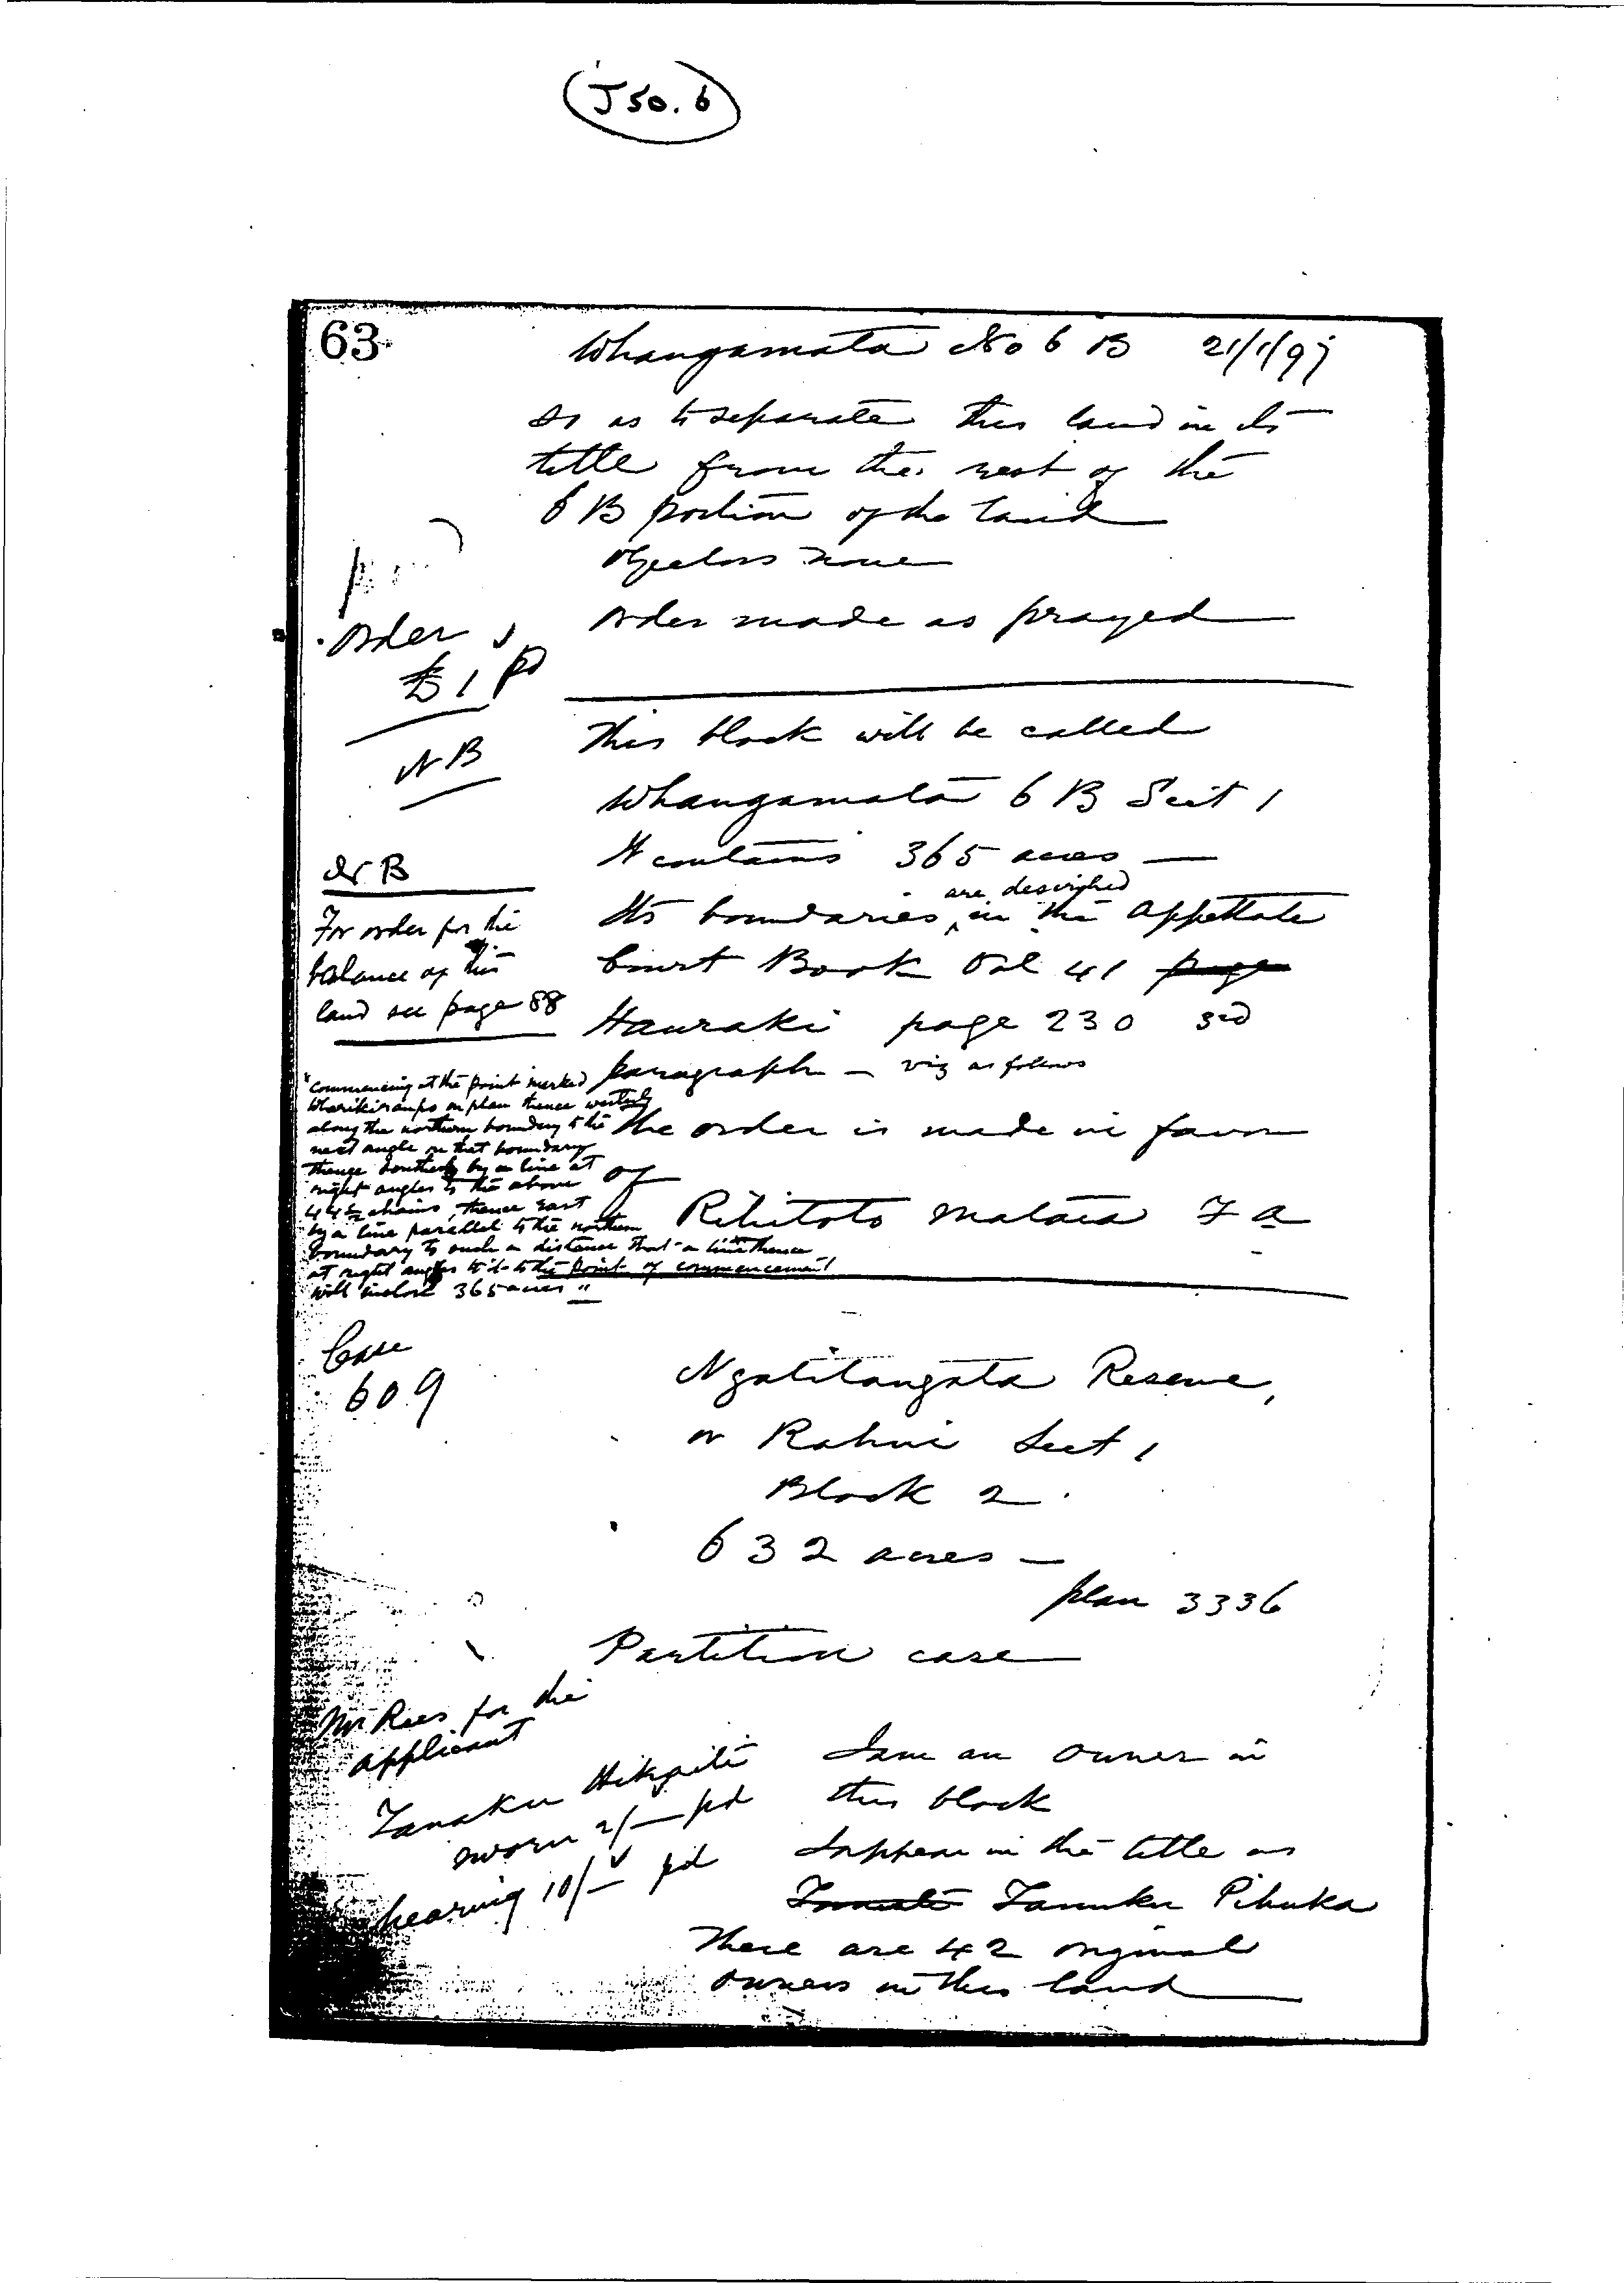 J 50. 6
63
Whangamata No 6 B 21/1/97
so as to separate this land in its
title from the rest of the
6 B portion of the land
objectors none
order made as prayed
order
£1 pd
NB
This block will be called
Whangamata 6 B Sect 1
It contains 365 acres —
are described
Its boundaries ‸ in the Appellate
Court Book Vol 41 page
Hauraki page 230 3rd
paragraph — viz as follows
N B
For order for the
balance of this
land see page 88
"commencing at the point marked
on plan thence westerly
along the northern boundary to the
next angle on that boundary
thence southerly by a line at
right angles to the above
44½ chains, thence east
by a line parallel to the northern
boundary to such a distance that a line thence
at right angles to it to the point of commencement
will inclose 365 acres"
The order is made in favor
of
Rihitoto Mataia F a
Case
609
Ngatitangata Reserve,
or Rahui Sect 1
Block 2.
632 acres —
plan 3336
Partition case
Mr Rees for the
applicant
Tanaku
sworn 2/— pd
hearing 10/— pd
I am an owner in
this block
I appear in the title as
Tanuku Pihuka
There are 42 original
owners in this land